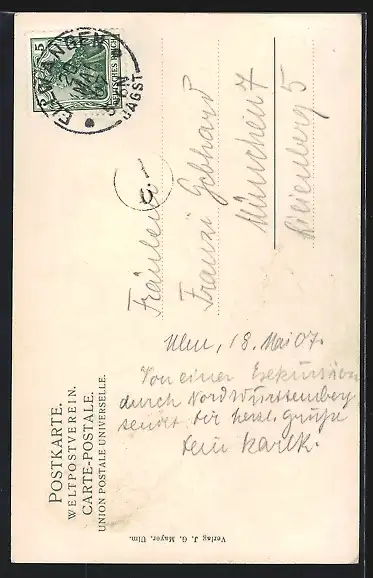 POSTKARTE.
WELTPOSTVEREIN.
CARTE-POSTALE.
UNION POSTALE UNIVERSELLE.
5
DEUTSCHES REICH
ELLWANGEN
MAI
JAGST
Fräulein
Franzi Gebhard
München 7
5
Ulm, 18. Mai 07.
Von einer Exkursion
durch Nordwürttemberg
sendet Dir herzl. Grüße
Dein
Verlag J. G. Mayer, Ulm.